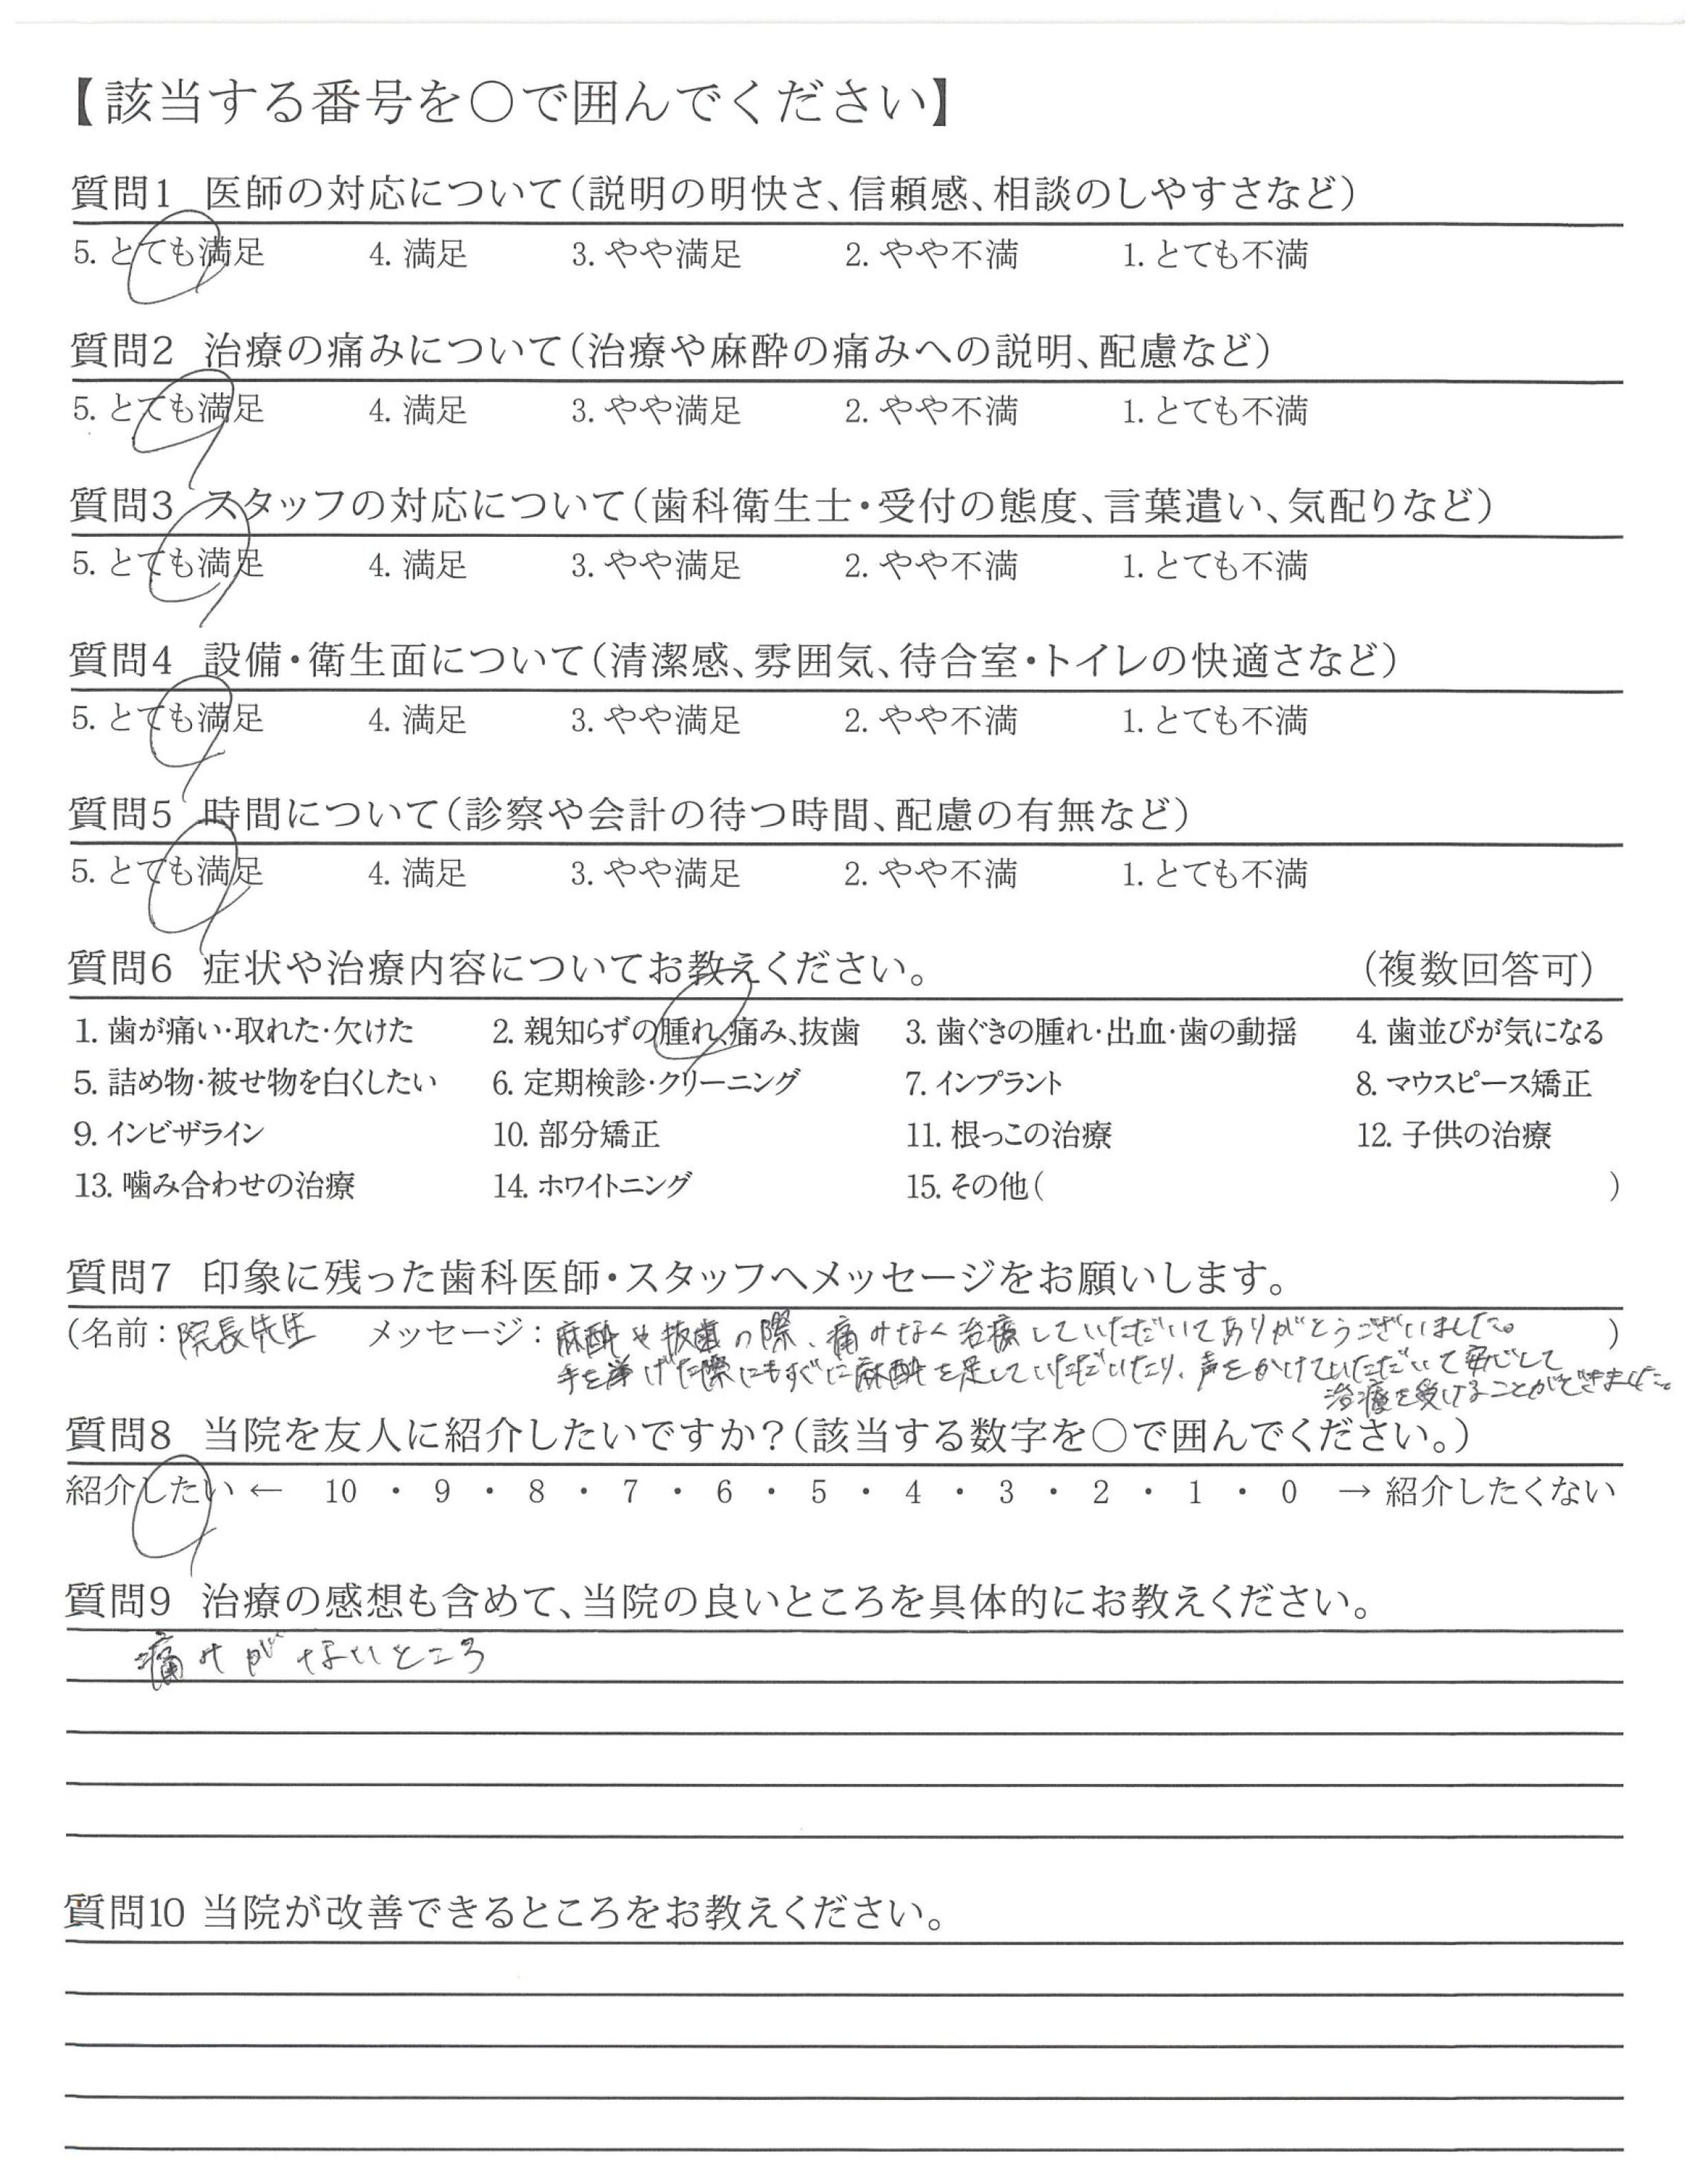 【該当する番号を○で囲んでください】
質問1 医師の対応について(説明の明快さ、信頼感、相談のしやすさなど)
5. とても満足 4. 満足 3. やや満足 2. やや不満 1. とても不満
質問2 治療の痛みについて(治療や麻酔の痛みへの説明、配慮など)
5. とても満足 4. 満足 3. やや満足 2. やや不満 1. とても不満
質問3 スタッフの対応について(歯科衛生士・受付の態度、言葉遣い、気配りなど)
5. とても満足 4. 満足 3. やや満足 2. やや不満 1. とても不満
質問4 設備・衛生面について(清潔感、雰囲気、待合室・トイレの快適さなど)
5. とても満足 4. 満足 3. やや満足 2. やや不満 1. とても不満
質問5 時間について(診察や会計の待つ時間、配慮の有無など)
5. とても満足 4. 満足 3. やや満足 2. やや不満 1. とても不満
質問6 症状や治療内容についてお教えください。 (複数回答可)
1. 歯が痛い・取れた・欠けた 2. 親知らずの腫れ、痛み、抜歯 3. 歯ぐきの腫れ・出血・歯の動揺 4. 歯並びが気になる
5. 詰め物・被せ物を白くしたい 6. 定期検診・クリーニング 7. インプラント 8. マウスピース矯正
9. インビザライン 10. 部分矯正 11. 根っこの治療 12. 子供の治療
13. 噛み合わせの治療 14. ホワイトニング 15. その他( )
質問7 印象に残った歯科医師・スタッフへメッセージをお願いします。
(名前：院長先生 メッセージ：麻酔や抜歯の際、痛みなく治療していただいてありがとうございました。 )
手を挙げた際にもすぐに麻酔を足していただいたり、声をかけていただいて安心して
治療を受けることができました。
質問8 当院を友人に紹介したいですか？(該当する数字を○で囲んでください。)
紹介したい ← 10 ・ 9 ・ 8 ・ 7 ・ 6 ・ 5 ・ 4 ・ 3 ・ 2 ・ 1 ・ 0 → 紹介したくない
質問9 治療の感想も含めて、当院の良いところを具体的にお教えください。
痛みがないところ
質問10 当院が改善できるところをお教えください。